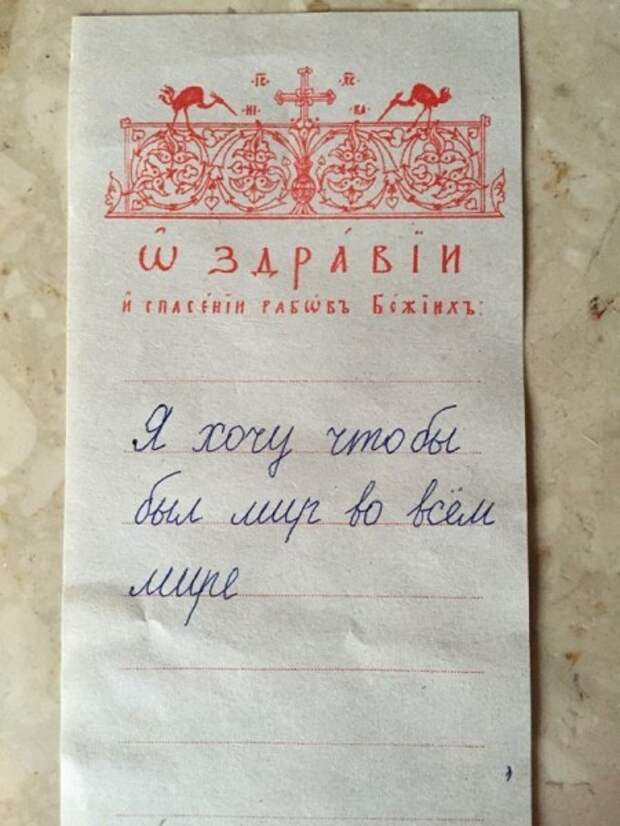 ІС ХС
НИ КА
Ѽ ЗДРА́ВЇИ
И҆ СПАСЕ́НЇИ РАБѠ́ВЪ БО́ЖЇИХЪ:
Я хочу чтобы
был мир во всём
мире